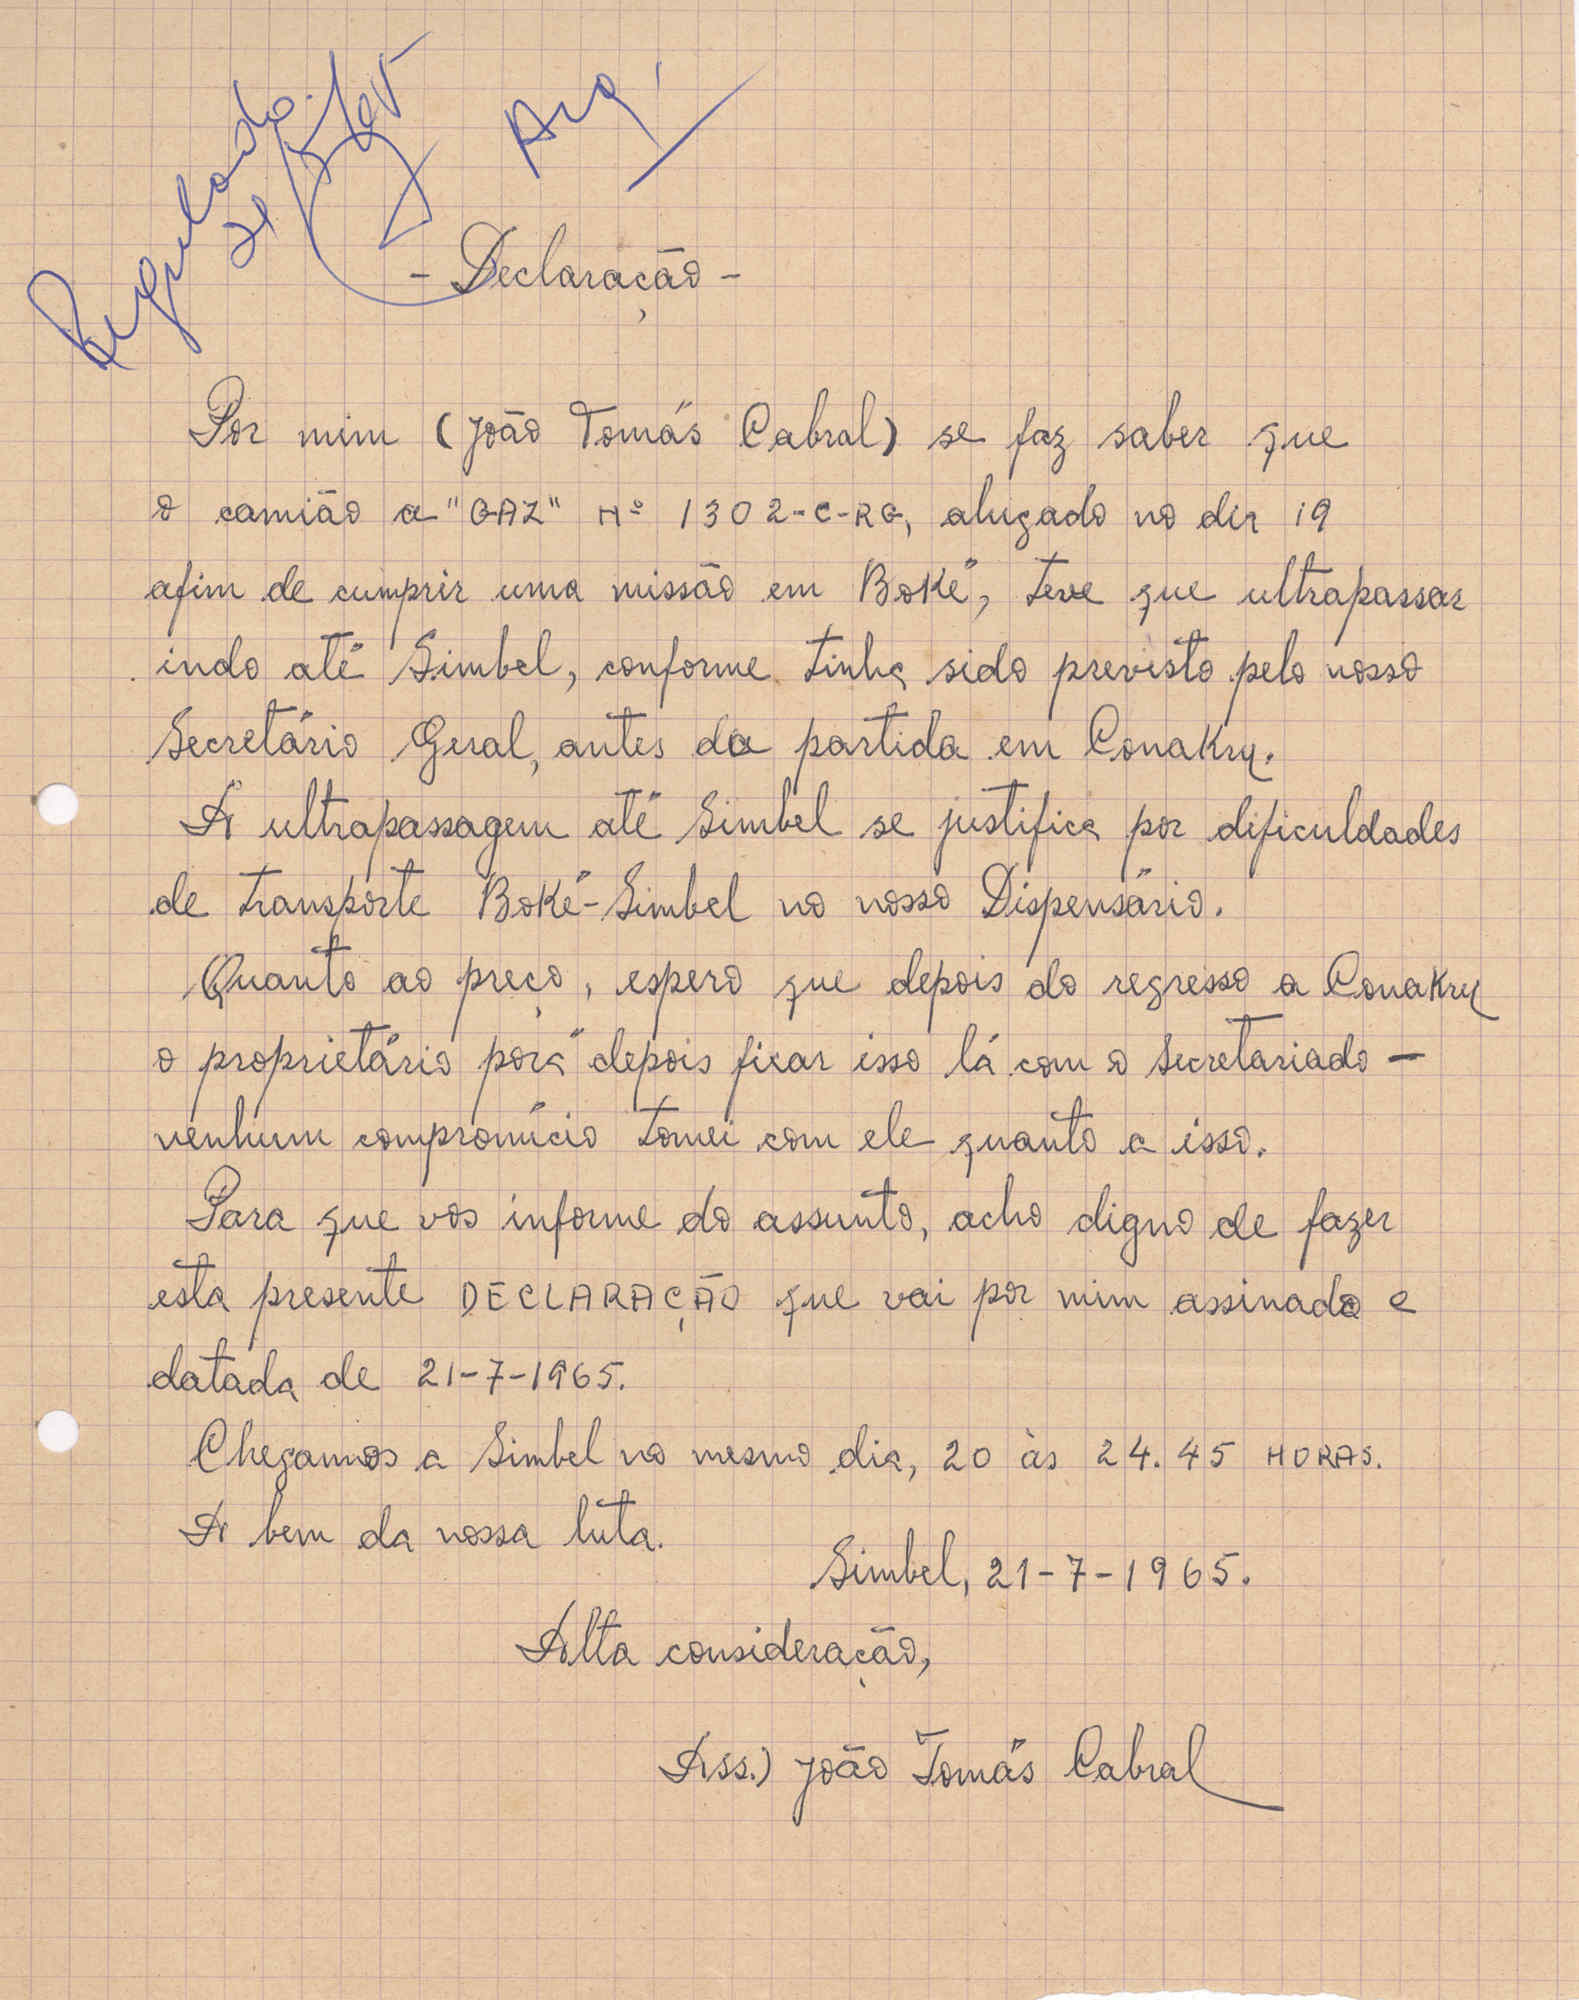 Regulado.
Arq.
- Declaração -
Por mim (João Tomás Cabral) se faz saber que
o camião a "GAZ" Nº 1302-C-RG, alugado no dia 19
afim de cumprir uma missão em Boké, teve que ultrapassar
indo até Simbel, conforme tinha sido previsto pelo nosso
Secretário Geral, antes da partida em Conakry.
A ultrapassagem até Simbel se justifica por dificuldades
de transporte Boké-Simbel no nosso Dispensário.
Quanto ao preço, espero que depois do regresso a Conakry
o proprietário porá depois ficar isso lá com o Secretariado —
nenhum compromício tomei com ele quanto a isso.
Para que vos informe do assunto, acho digno de fazer
esta presente DECLARAÇÃO que vai por mim assinada e
datada de 21-7-1965.
Chegamos a Simbel no mesmo dia, 20 às 24.45 HORAS.
A bem da nossa luta.
Simbel, 21-7-1965.
Alta consideração,
Ass.) João Tomás Cabral